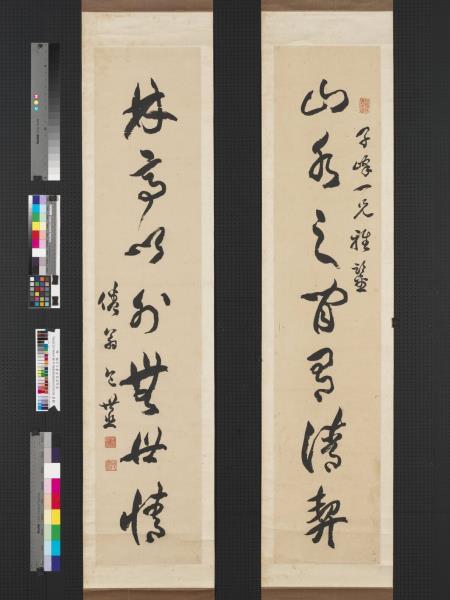 山水之間有清契
子峰一兄雅鑒
林亭以外無世情
倦翁包世臣